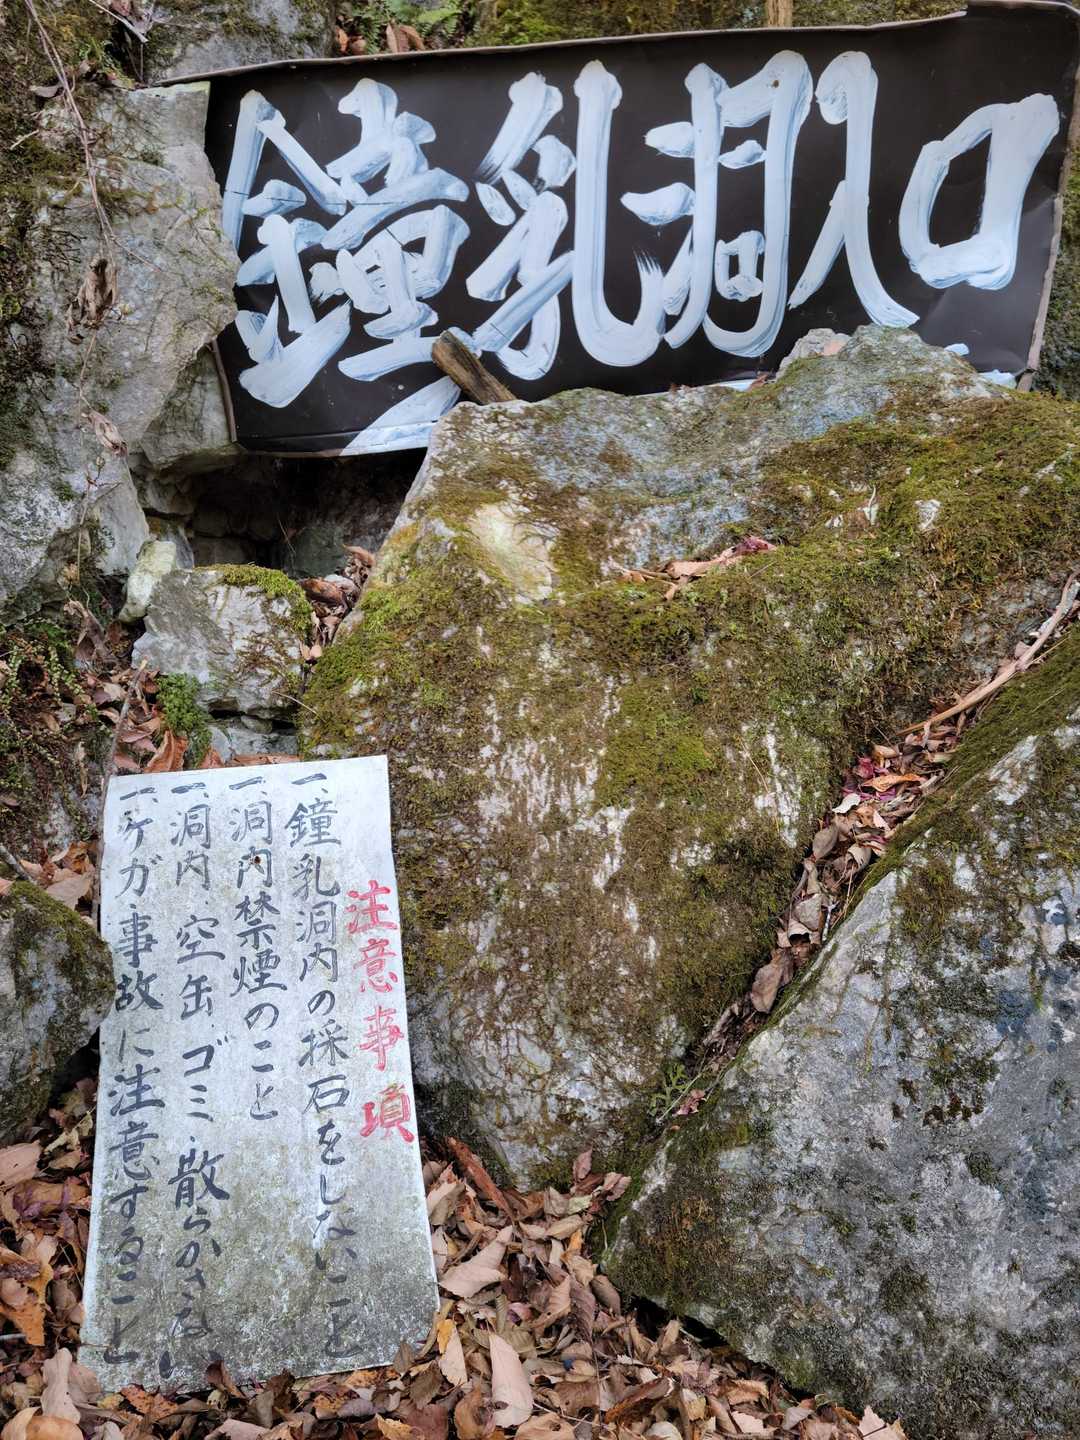 鐘乳洞入口
注意事項
一、鐘乳洞内の採石をしないこと
一、洞内禁煙のこと
一、洞内、空缶、ゴミ、散らかさない
一、ケガ・事故に注意すること